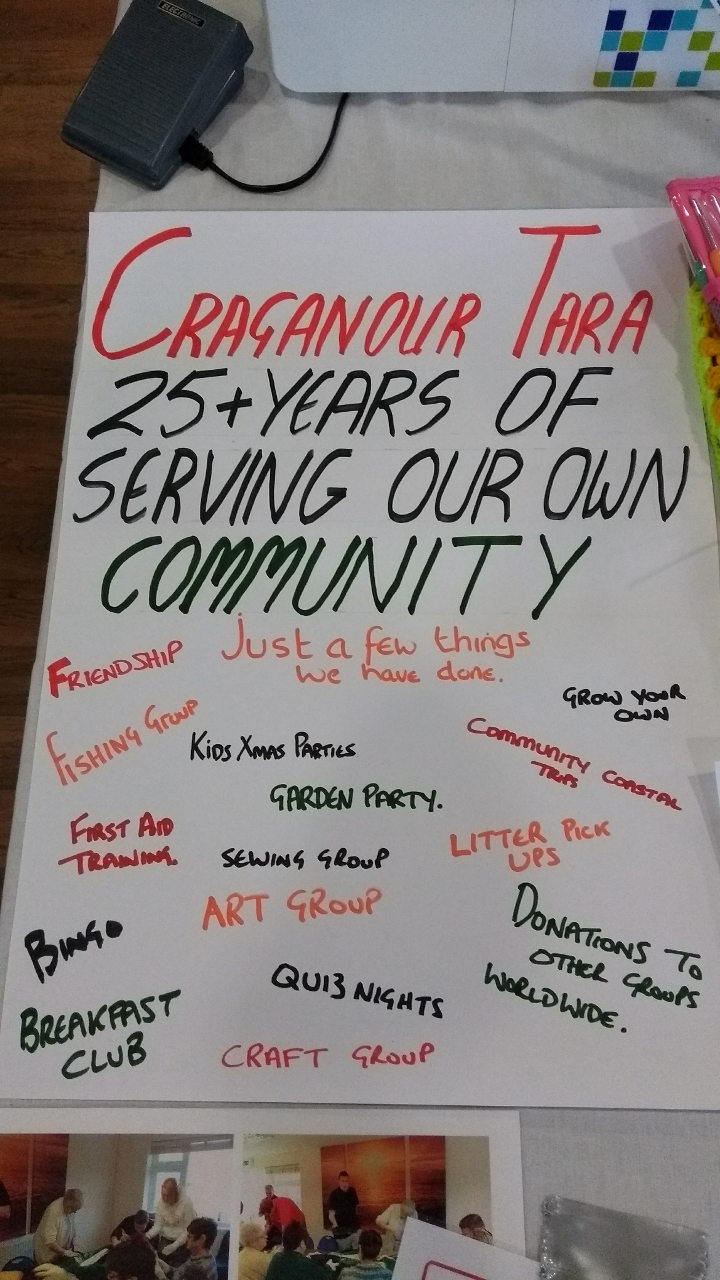 ELECTRONIC
CRAGANOUR TARA
25+YEARS OF
SERVING OUR OWN
COMMUNITY
Just a few things
we have done.
FRIENDSHIP
GROW YOUR
OWN
FISHING GROUP
KIDS XMAS PARTIES
COMMUNITY COASTAL
TRIPS
GARDEN PARTY.
FIRST AID
TRAINING.
SEWING GROUP
LITTER PICK
UPS
ART GROUP
BINGO
DONATIONS TO
OTHER GROUPS
WORLDWIDE.
QUIZ NIGHTS
BREAKFAST
CLUB
CRAFT GROUP